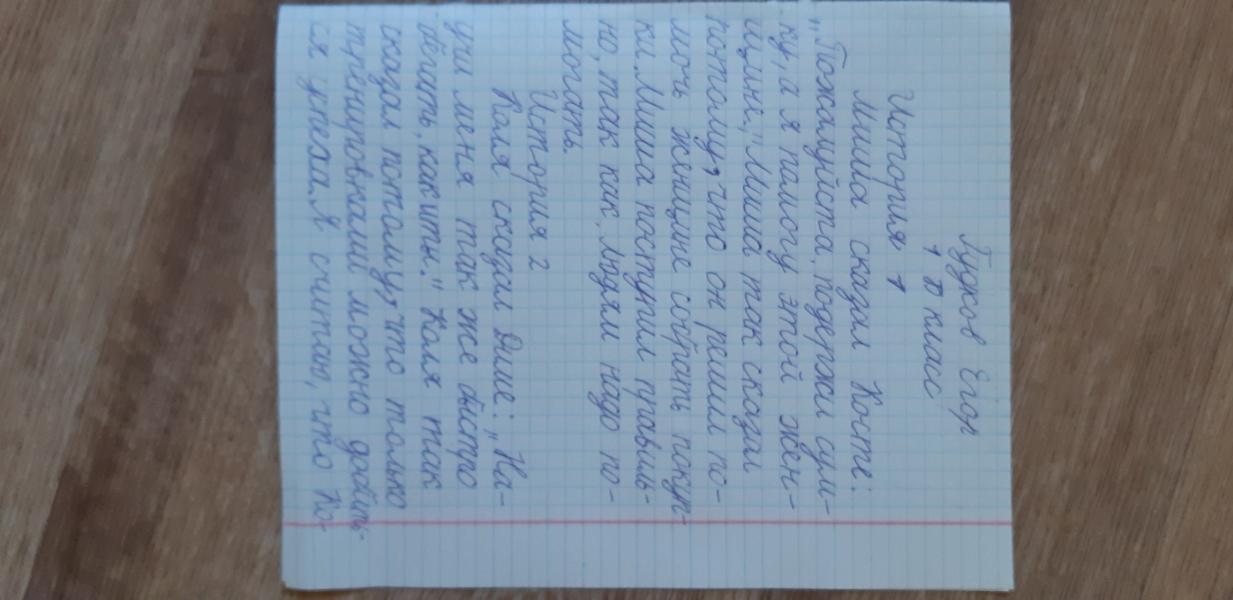 Гудков Егор
1 В класс
История 1
Миша сказал Косте:
„Пожалуйста, подержи сум-
ку, а я памогу этой жен-
щине." Миша так сказал
потому, что он решил по-
мочь женщине собрать покуп-
ки. Миша поступил правиль-
но, так как, людям надо по-
могать.
История 2
Коля сказал Диме: „На-
учи меня так же быстро
бегать, как ты." Коля так
сказал потому, что только
тренировками можно добить-
ся успеха. Я считаю, что Ко-